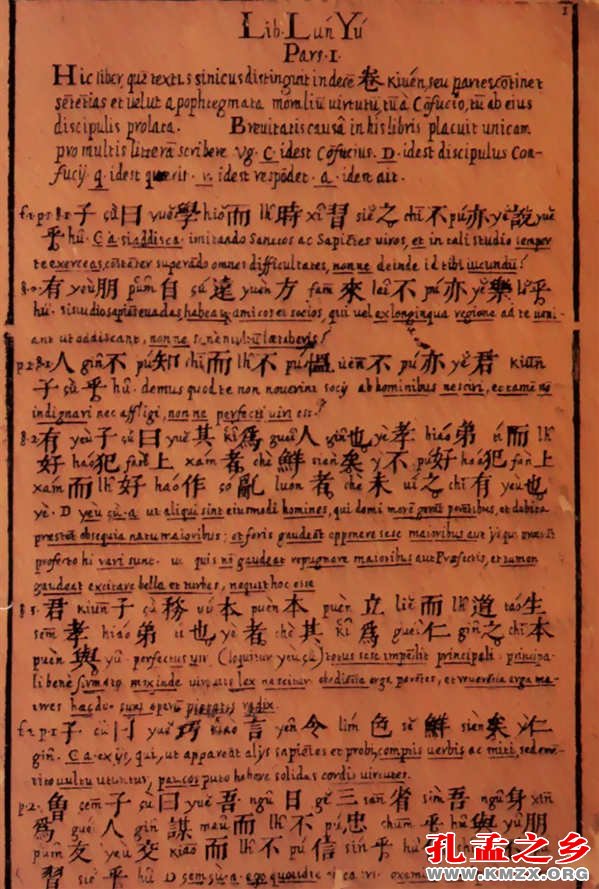 1
Lib. Lun Yú
Pars. I.
Hic liber, quē textus sinicus distinguit in decē 卷 kiuén, seu partes cōtinet
sētētias et velut apophtegmata moraliū virtutū, tū a Cōfucio, tū ab eius
discipulis prolata. Brevitatis causâ in his libris placuit unicam
pro multis litterā scribere. Vg. C. idest Cōfucius. D. idest discipulus Con-
fucÿ. q. idest quærit. r. idest respōdet. a. idest ait.
f.1.p.1.§.1. 子 çù 曰 yuě 學 hiŏ 而 lh̑ 時 xî 習 siě 之 chī 不 pú 亦 yě 說 yuě
乎 hû. C. a. si addisca imitando Sanctos ac Sapiētes viros, et in tali studio semper
te exerceas, cōstāter superādo omnes difficultates, nonne deinde id tibi iucundū?
§.2. 有 yeù 朋 pûm 自 çú 遠 yuèn 方 fam 來 laî 不 pú 亦 yě 樂 lŏ 乎
hû. si studio sapiētē evadas habeas amicos et socios, qui vel ex longinqua regione ad te veni-
ant ut addiscant, nonne lætaberis?
p.2.§.1. 人 gîn 不 pú 知 chī 而 lh̑ 不 pú 慍 uén 不 pú 亦 yě 君 kiūn
子 çù 乎 hû. demus quod te non noverint socÿ ab hominibus nesciri, et tamē nō
indignari nec affligi, nonne perfecti viri est?
§.2. 有 yeù 子 çù 曰 yuě 其 kî 為 guêi 人 gîn 也 yè 孝 hiáo 弟 tí 而 lh̑
好 háo 犯 fán 上 xám 者 chè 鮮 sièn 矣 ỳ 不 pú 好 háo 犯 fán 上
xám 而 lh̑ 好 háo 作 çŏ 亂 luón 者 chè 未 uí 之 chī 有 yeù 也
yè. D yeu çù. a. ut aliqui sint eiusmodi homines, qui domi morē gerāt parētibus, et debita
præstēt obsequia natu maioribus; et foris gaudeāt opponere sese maioribus aut
profecto hi rari sunt. quis nō gaudeat repugnare maioribus aut Præfectis, et tamen
gaudeat excitare bella et turbas, nequit hoc esse
§.3. 君 kiūn 子 çù 務 vú 本 puèn 本 puèn 立 liě 而 lh̑ 道 táo 生
sēm 孝 hiáo 弟 tí 也 yè 者 chè 其 kî 為 guêi 仁 gîn 之 chī 本
puèn 與 yû. perfectus vir (loquitur yeu çù) totus sese impēdit principali. principa-
li bene firmato, mox inde virtutis lex nascitur. obediētia erga parētes, et reverētia erga ma-
iores hæc duo sunt operū pietatis radix.
f.2.p.1. 子 çù 曰 yuě 巧 kiào 言 yên 令 lím 色 sě 鮮 sièn 矣 ỳ 仁
gîn. C. a. ex ijs, qui, ut appareāt alÿs sapiētes et probi, comptis verbis ac miti, sed
vultu utuntur, paucos puto habere solidas cordis virtutes.
p.2. 曾 çēm 子 çù 曰 yuě 吾 ngû 日 gě 三 sān 省 sìm 吾 ngû 身 xīn
為 guéi 人 gîn 謀 meû 而 lh̑ 不 pú 忠 chūm 乎 hû 與 yù 朋
pûm 友 yeù 交 kiāo 而 lh̑ 不 pú 信 sín 乎 hû 傳 不
習 siě 乎 hû. D. sem çu. a. ego quotidie
孔孟之乡
WWW.KMZX.ORG